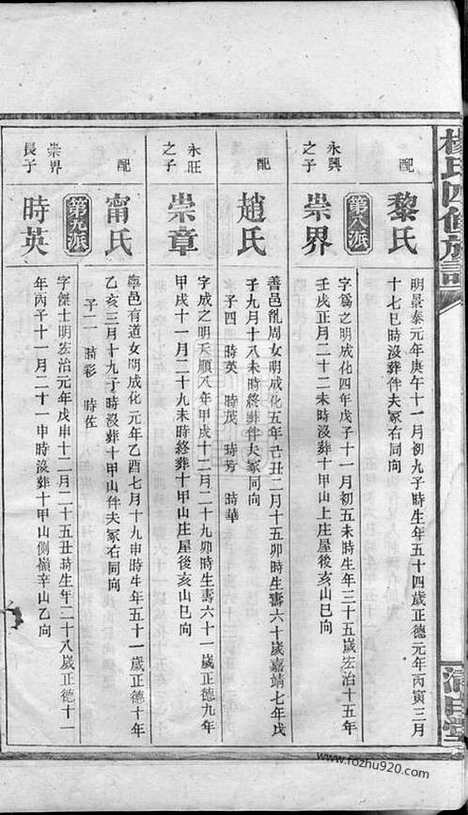 楊氏四修族譜
配
黎氏
明景泰元年庚午十一月初九子時生年五十四歲正德元年丙寅三月
十七巳時沒葬伴夫冢右同向
第八派
永興
之子
崇界
字錫之明成化四年戊子十一月初五未時生年三十五歲宏治十五年
壬戌正月二十二未時沒葬十甲山上庄屋後亥山巳向
配
趙氏
善邑乱周女明成化五年己丑二月十五卯時生壽六十歲嘉靖七年戊
子九月十八未時終葬伴夫冢同向
子四 時英 時茂 時芳 時華
永旺
之子
崇章
字成之明天順八年甲戌十二月二十九卯時生壽六十一歲正德九年
甲戌十一月二十九未時終葬十甲山庄屋後亥山巳向
配
甯氏
寧邑有道女明成化元年乙酉七月十九申時生年五十一歲正德十年
乙亥三月十九丁時沒葬十甲山伴夫冢右同向
子二 時彩 時佐
第九派
崇界
長子
時英
字傑士明宏治元年戊申十二月二十五丑時生年二十八歲正德十一
年丙子十一月二十一申時沒葬十甲山側嶺辛山乙向
清白堂
www.fozhu920.com